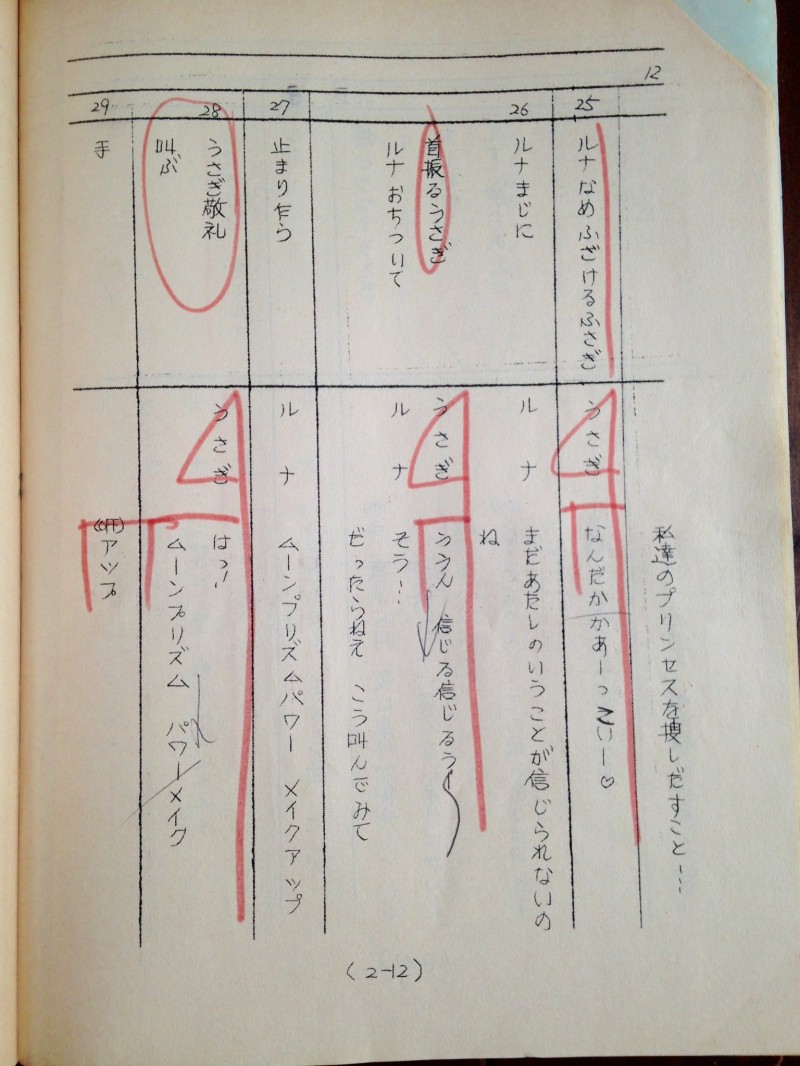 12
私達のプリンセスを捜しだすこと…
25
ルナなめふざけるふさぎ
うさぎ
なんだかかあーっこいー♡
26
ルナまじに
ルナ
まだあたしのいうことが信じられないの
ね
首振るうさぎ
うさぎ
ううん 信じる信じるう
ルナおちついて
ルナ
そう…
だったらねえ こう叫んでみて
27
止まり乍ら
ルナ
ムーンプリズムパワー メイクアップ
28
うさぎ敬礼
うさぎ
はっ!
叫ぶ
ムーンプリズム パワーメイク
29
手
(OFF)アップ
(2-12)